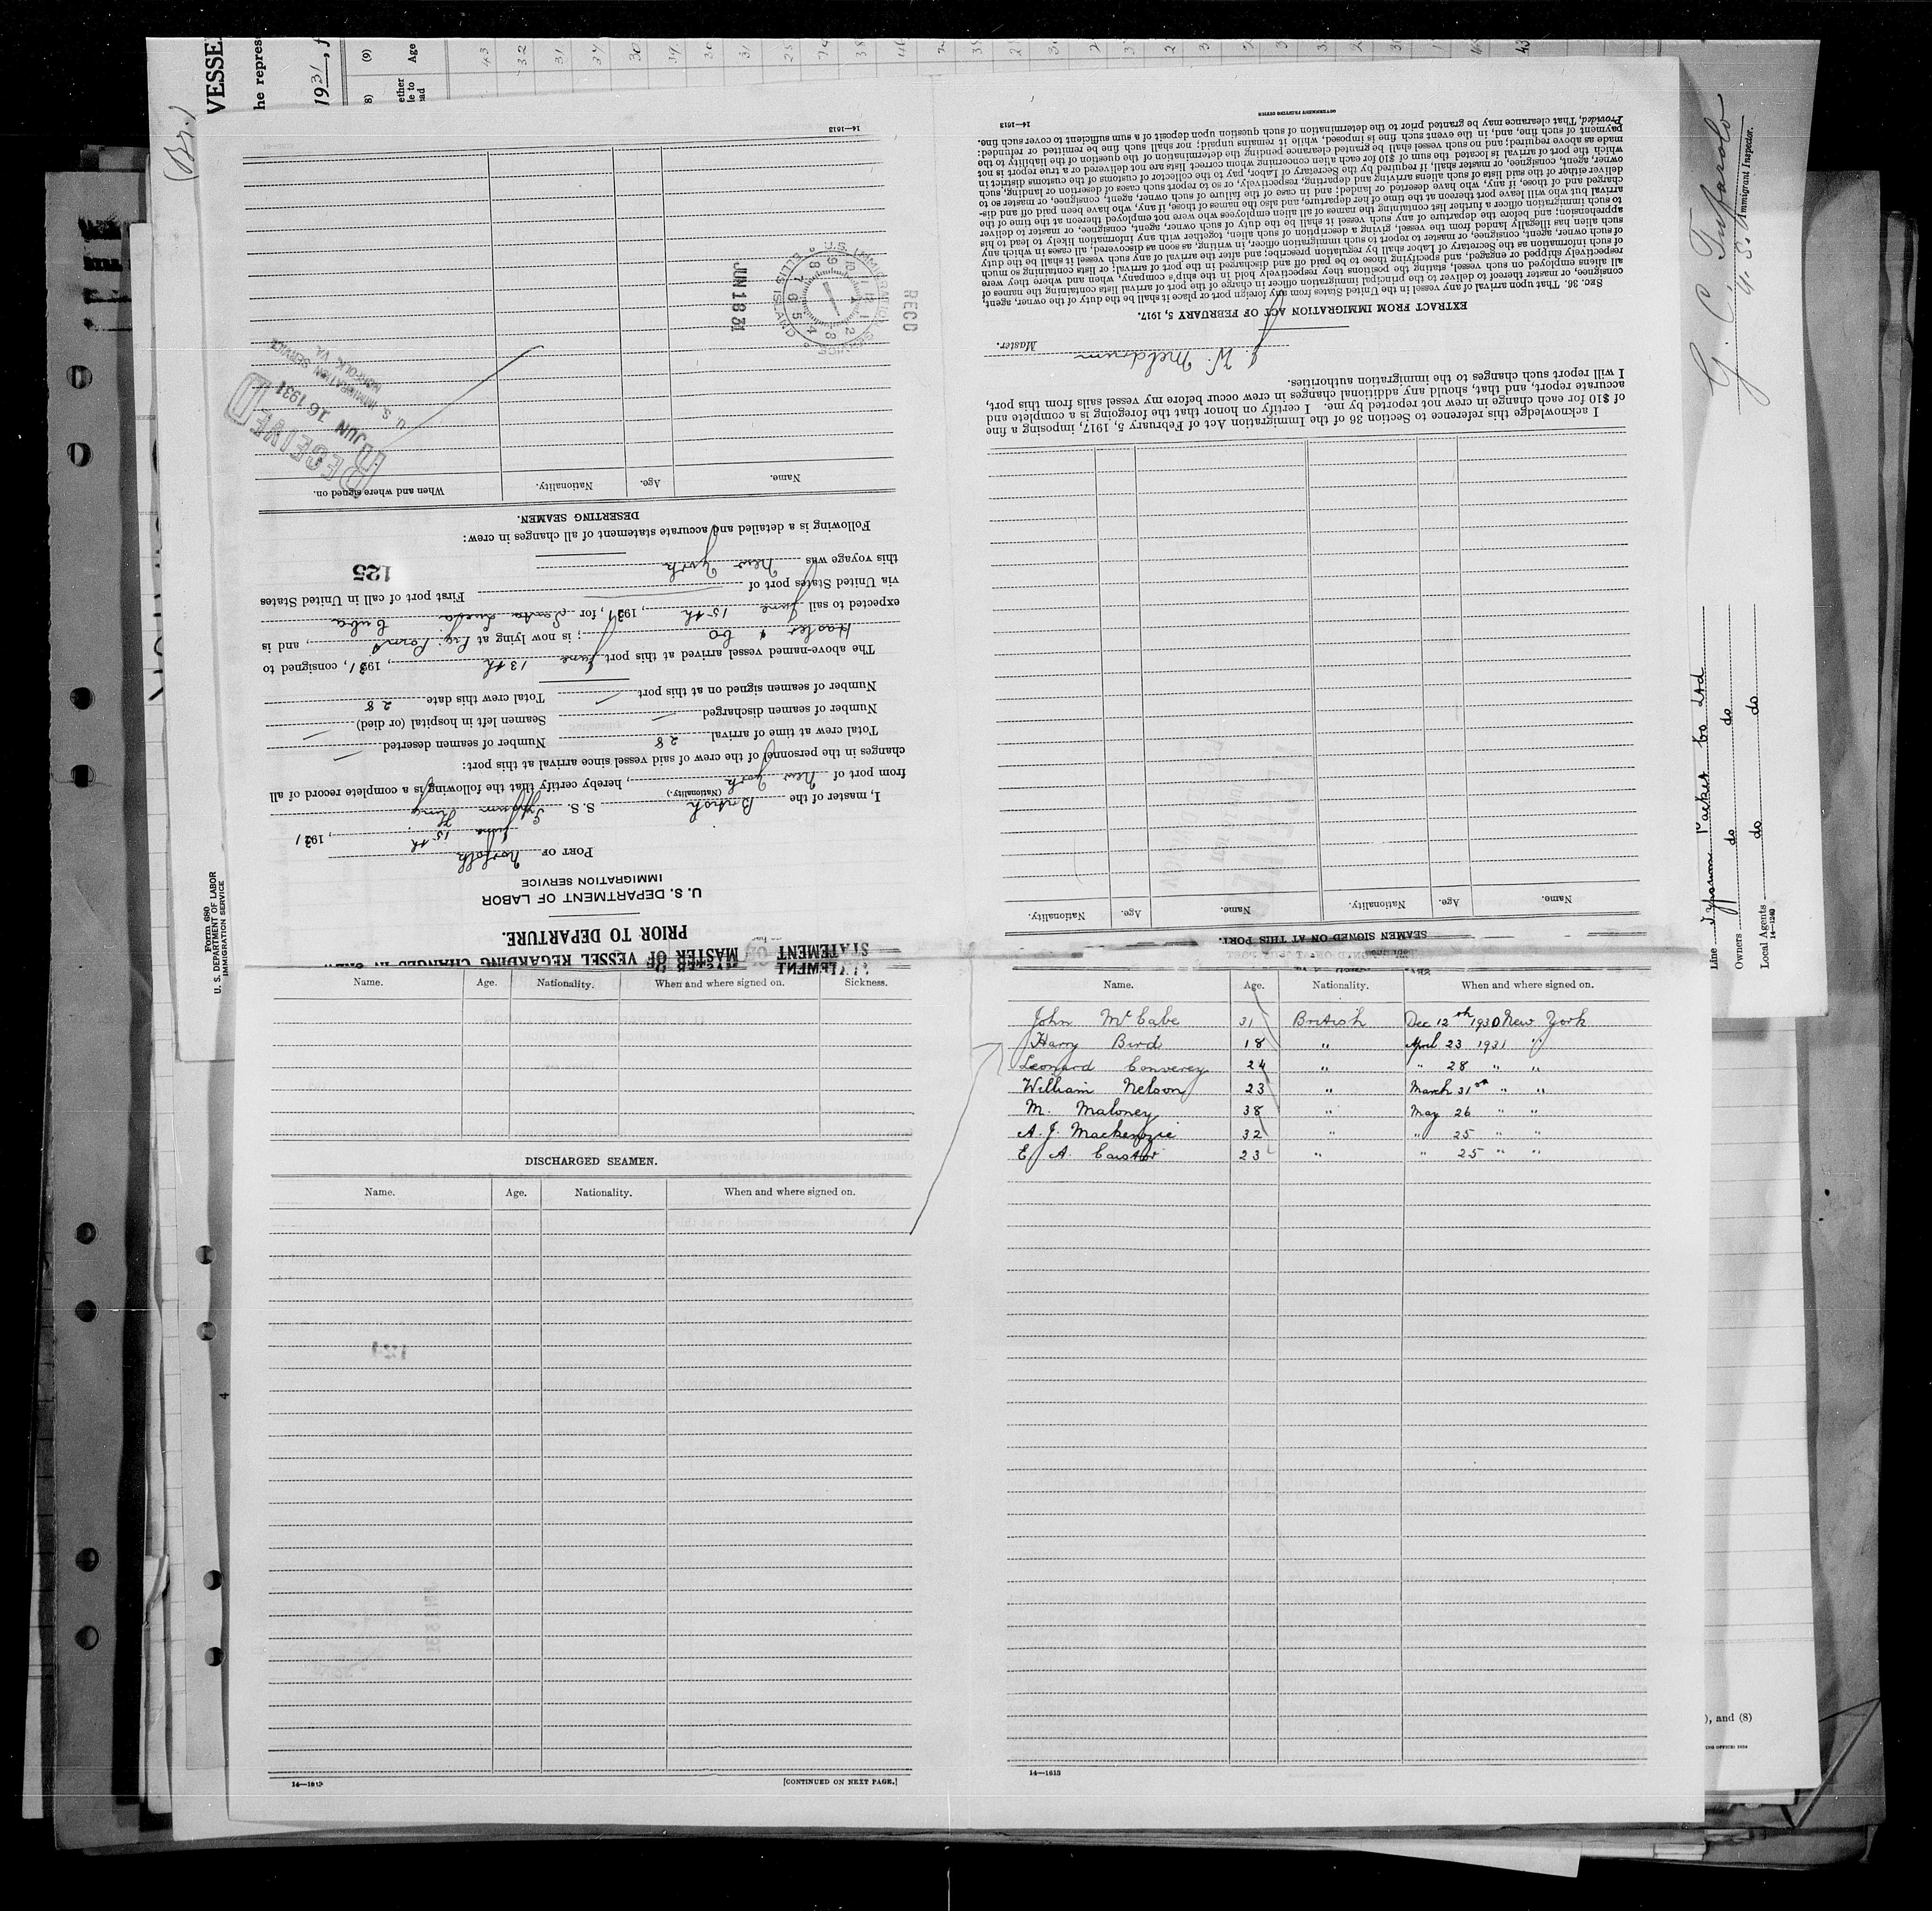 (Br.)
VESSEL
he repres
1931, f
(9)
8)
Age
ether
le to
ad
43
32
31
34
30
39
30
31
14—1613
RECD
JUN 16 31
U.S. IMMIGRATION SERVICE
ELLIS ISLAND
RECEIVED
JUN 16 1931
U. S. IMMIGRATION SERVICE
NORFOLK, VA.
STATEMENT OF MASTER OF VESSEL REGARDING CHANGES IN CREW
PRIOR TO DEPARTURE.
U. S. DEPARTMENT OF LABOR
IMMIGRATION SERVICE
PORT OF Norfolk
June 15th, 1931
I, master of the British S. S. Gypsum King
(Nationality.)
from port of New York, hereby certify that the following is a complete record of all
changes in the personnel of the crew of said vessel since arrival at this port:
Total crew at time of arrival 28 Number of seamen deserted —
Number of seamen discharged — Seamen left in hospital (or died) —
Number of seamen signed on at this port — Total crew this date 28
The above-named vessel arrived at this port June 13th, 1931, consigned to
Hasler & Co; is now lying at Pig Point, and is
expected to sail June 15th, 1931, for Santa Cuba
via United States port of — First port of call in United States
this voyage was New York
125
Following is a detailed and accurate statement of all changes in crew:
DESERTING SEAMEN.
Name. Age. Nationality. When and where signed on.
SEAMEN SIGNED ON AT THIS PORT.
Name. Age. Nationality. Name. Age. Nationality.
I acknowledge this reference to Section 36 of the Immigration Act of February 5, 1917, imposing a fine
of $10 for each change in crew not reported by me. I certify on honor that the foregoing is a complete and
accurate report, and that, should any additional changes in crew occur before my vessel sails from this port,
I will report such changes to the immigration authorities.
J. W. Meldrum
Master.
EXTRACT FROM IMMIGRATION ACT OF FEBRUARY 5, 1917.
SEC. 36. That upon arrival of any vessel in the United States from any foreign port or place it shall be the duty of the owner, agent,
consignee, or master thereof to deliver to the principal immigration officer in charge of the port of arrival lists containing the names of
all aliens employed on such vessel, stating the positions they respectively hold in the ship's company, when and where they were
respectively shipped or engaged, and specifying those to be paid off and discharged in the port of arrival; or lists containing so much
of such information as the Secretary of Labor shall by regulation prescribe; and after the arrival of any such vessel it shall be the duty
of such owner, agent, consignee, or master to report to such immigration officer, in writing, as soon as discovered, all cases in which any
such alien has illegally landed from the vessel, giving a description of such alien, together with any information likely to lead to his
apprehension; and before the departure of any such vessel it shall be the duty of such owner, agent, consignee, or master to deliver
to such immigration officer a further list containing the names of all alien employees who were not employed thereon at the time of the
arrival but who will leave port thereon at the time of her departure, and also the names of those, if any, who have been paid off and dis-
charged and of those, if any, who have deserted or landed; and in case of the failure of such owner, agent, consignee, or master so to
deliver either of the said lists of such aliens arriving and departing, respectively, or so to report such cases of desertion or landing, such
owner, agent, consignee, or master shall, if required by the Secretary of Labor, pay to the collector of customs of the customs district in
which the port of arrival is located the sum of $10 for each alien concerning whom correct lists are not delivered or a true report is not
made as above required; and no such vessel shall be granted clearance pending the determination of the question of the liability to the
payment of such fine, and, in the event such fine is imposed, while it remains unpaid; nor shall such fine be remitted or refunded:
Provided, That clearance may be granted prior to the determination of such question upon deposit of a sum sufficient to cover such fine.
14—1613
GOVERNMENT PRINTING OFFICE
Name. Age. Nationality. When and where signed on. Sickness.
DISCHARGED SEAMEN.
Name. Age. Nationality. When and where signed on.
14—1613
[CONTINUED ON NEXT PAGE.]
Name. Age. Nationality. When and where signed on.
John McCabe 31 British Dec 12th 1930 New York
Harry Bird 18 " April 23 1931 "
Leonard Converey 24 " " 28 " "
William Nelson 23 " March 31st " "
M. Maloney 38 " May 26 " "
A. J. Mackenzie 32 " " 25 " "
E. A. Caistor 23 " " 25 " "
14—1613
Form 680
U. S. DEPARTMENT OF LABOR
IMMIGRATION SERVICE
4
U. S.
Immigrant Inspector.
Line Gypsum Packet Co Ltd
Owners do do
Local Agents do do
14—1240
), and (8)